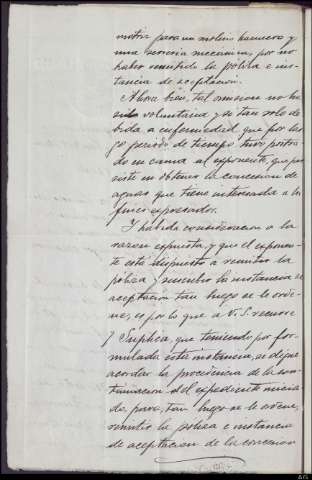 motriz para un molino harinero y
una serrería mecánica, por no
haber remitido la póliza e ins-
tancia de aceptación.
Ahora bien, tal omision no ha
sido voluntaria y si tan solo de-
bida a enfermedad que por lar-
go periodo de tiempo tuvo postra-
do en cama al exponente, que per-
siste en obtener la concesion de
aguas que tiene interesada a los
fines expresados.
Y habida consideracion a la
razon expuesta, y que el exponen-
te está dispuesto a remitir la
póliza y suscribir la instancia de
aceptacion tan luego se le orde-
ne, es por lo que a V.S. recurre
y Suplica, que teniendo por for-
mulada esta instancia, se digne
acordar la procedencia de la con-
tinuacion del expediente inicia-
do, para, tan luego se le ordene,
remitir la póliza e instancia
de aceptacion de la concesion